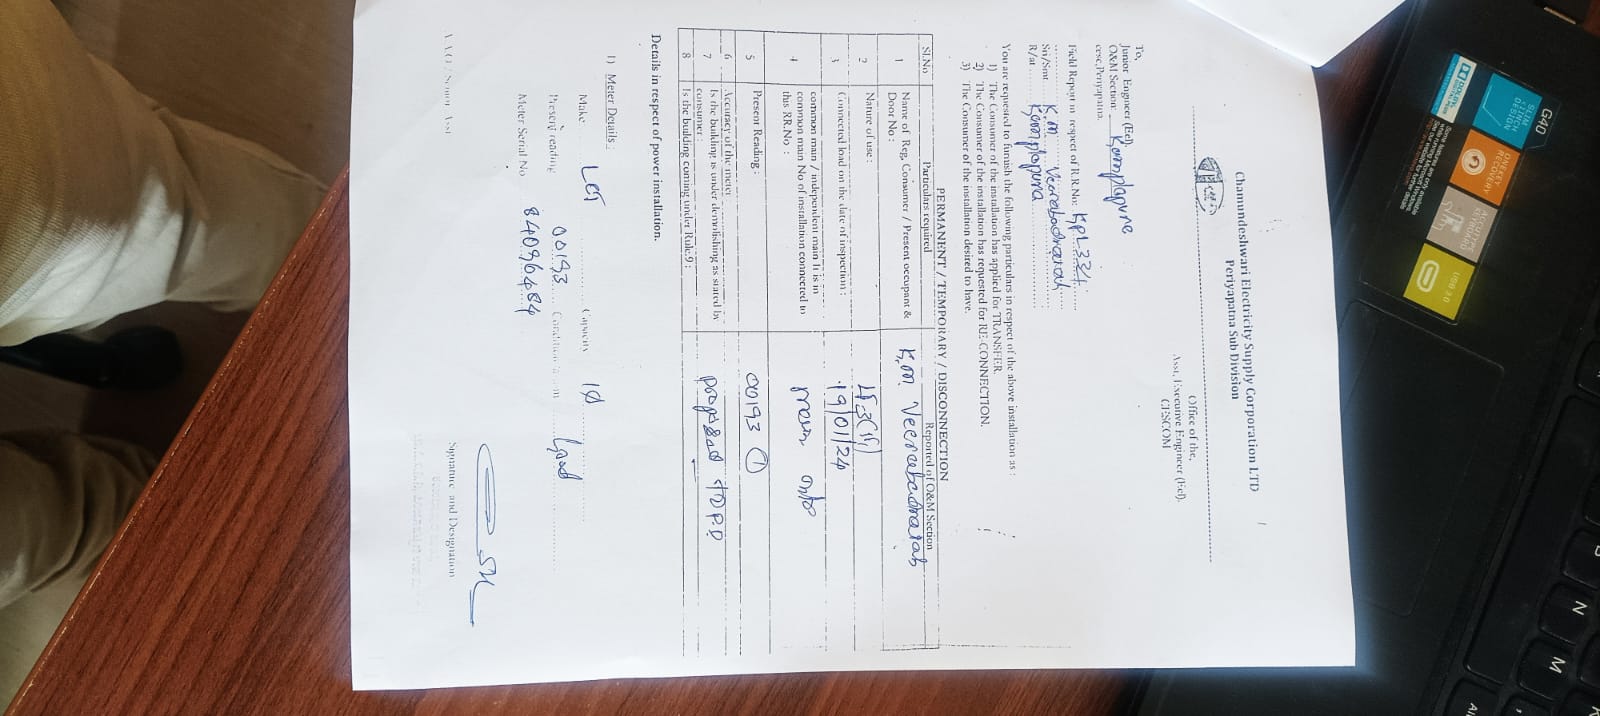 Chamundeshwari Electricity Supply Corporation LTD
Periyapatna Sub Division
Office of the,
Asst. Executive Engineer (Eel).
CESCOM
To,
Junior Engineer (Eel),
O&M Section: Kamplapura
cesc,Periyapatna.
Field Report in respect of R.R.No: KPL334
Sri/Smt K.M. Veerabadrarah
R/at Kamplapura
You are requested to furnish the following particulars in respect of the above installation as :
1) The Consumer of the installation has applied for TRANSFER.
2) The Consumer of the installation has requested for RE-CONNECTION.
3) The Consumer of the installation desired to have.
PERMANENT / TEMPORARY / DISCONNECTION
Sl.No Particulars required Reported of O&M Section
1 Name of Reg. Consumer / Present occupant & K.M. Veerabadrarah
Door No :
2 Nature of use :
3 Connected load on the date of inspection : 19/01/24
4 common main / independent main It is in
common main No of installation connected to
this RR.No :
5 Present Reading : 00193 1
6 Accuracy of the meter
7 Is the building is under demolishing as stared by
consumer :
8 Is the building coming under Rule.9 :
Details in respect of power installation.
1) Meter Details :
Make L&T Capacity 1Ø
Present reading 00193 Condition Good
Meter Serial No 84096484
Signature and Designation